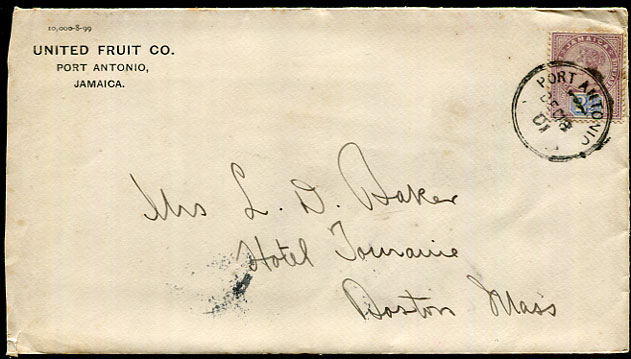 10,000-8-99
UNITED FRUIT CO.
PORT ANTONIO,
JAMAICA.
JAMAICA
PORT ANTONIO
DE
01
Mrs L. D. Baker
Hotel Touraine
Boston Mass